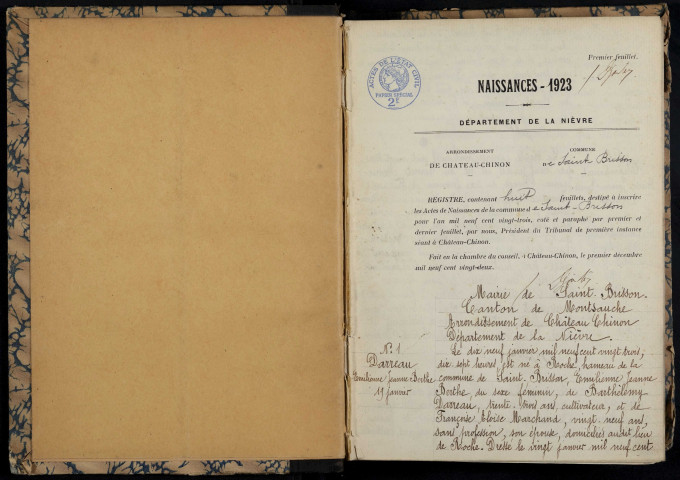 Premier feuillet.
ACTES DE L'ETAT CIVIL
PAPIER SPECIAL
2F
NAISSANCES - 1923
DÉPARTEMENT DE LA NIÈVRE
ARRONDISSEMENT
DE CHATEAU-CHINON
COMMUNE
De Saint Brisson
REGISTRE, contenant huit feuillets, destiné à inscrire
les Actes de Naissances de la commune de Saint-Brisson
pour l'an mil neuf cent vingt-trois, coté et paraphé par premier et
dernier feuillet, par nous, Président du Tribunal de première instance
séant à Château-Chinon.
Fait en la chambre du conseil, à Château-Chinon, le premier décembre
mil neuf cent vingt-deux.
Mairie de Saint-Brisson.
Canton de Montsauche
Arrondissement de Château Chinon
Département de la Nièvre.
N° 1
Darreau
Emilienne Jeanne Berthe
19 janvier
Le dix neuf janvier mil neuf cent vingt trois,
dix sept heures, est né à Roche, hameau de la
commune de Saint-Brisson, Emilienne Jeanne
Berthe du sexe féminin, de Barthélemy
Darreau, trente trois ans, cultivateur, et de
Françoise Eloïse Marchand, vingt-neuf ans,
sans profession, son épouse, domiciliés audit lieu
de Roche. Dressé le vingt janvier mil neuf cent